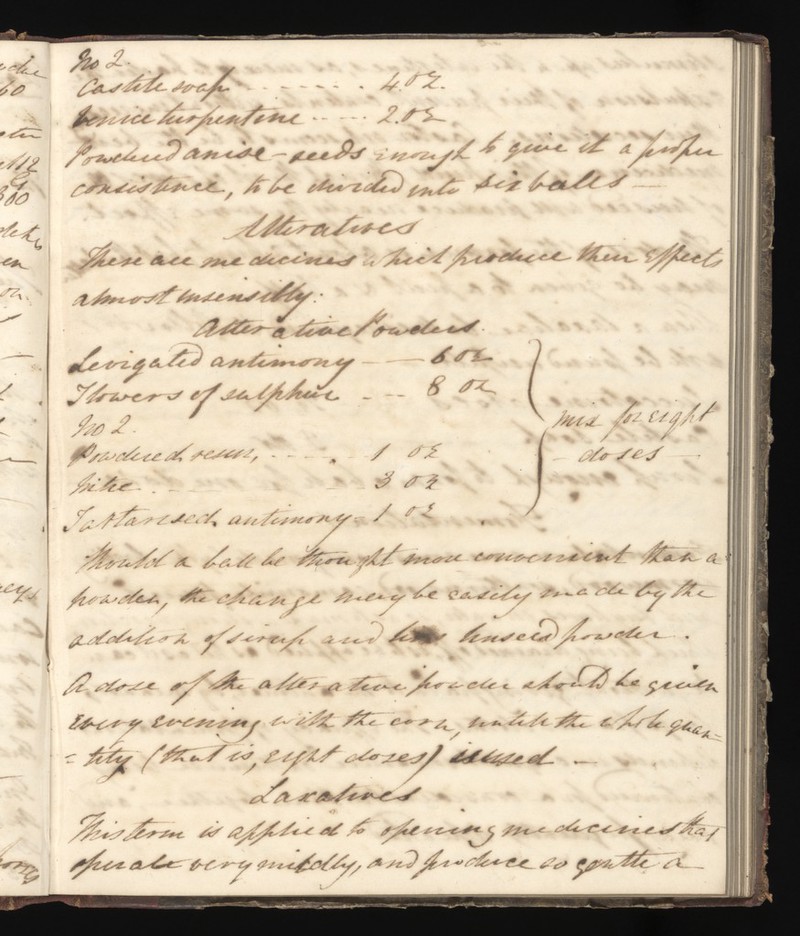 No 2.
Castile soap - - - - - - . 4.oz.
Venice turpentine - - - - - 2.oz
Powdered anise-seeds enough to give it a proper
consistence, to be divided into six balls —
Alteratives
These are medicines which produce their effects
almost insensibly:
Alterative Powders.
Levigated antimony — — 6 oz
Flowers of sulphur - - - 8 oz
mix for eight
— doses —
No 2.
Powdered resin, - - - - . 1 oz
Nitre . - - - - - 3 oz
Tartarised antimony - 1 oz
Should a ball be thought more convenient than a
powder, the change may be easily made by the
addition of sirup and linseed powder.
A dose of the alterative powder should be given
every evening with the corn, untill the whole quan-
-tity (that is, eight doses) is used —
Laxatives
This term is applied to opening medicines that
operate very mildly, and produce so gentle a
60
300